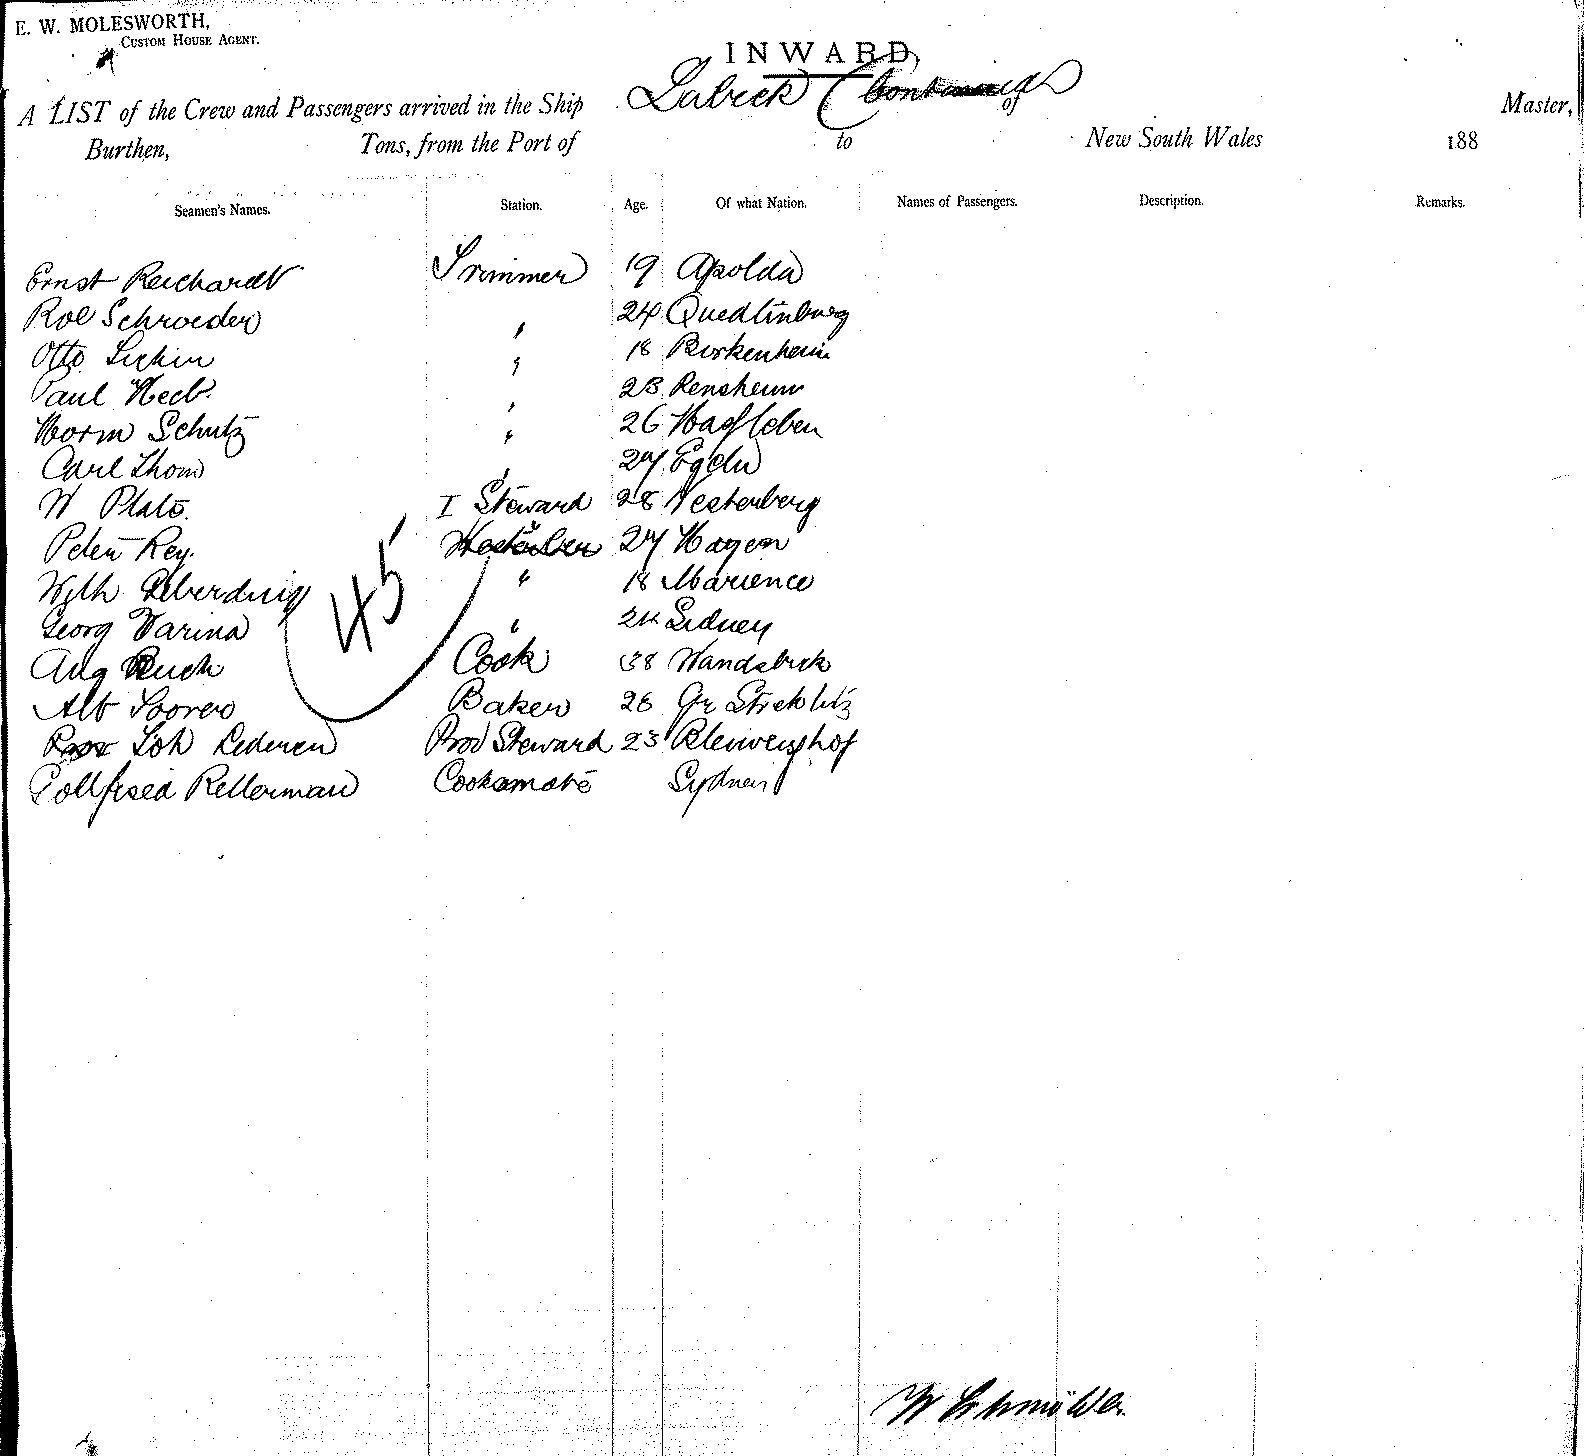 E. W. MOLESWORTH,
CUSTOM HOUSE AGENT.
INWARD,
A LIST of the Crew and Passengers arrived in the Ship Lubeck (Continued) of Master,
Burthen, Tons, from the Port of to New South Wales 188
Seamen's Names. Station. Age. Of what Nation. Names of Passengers. Description. Remarks.
Ernst Reichardt Trimmer 19 Apolda
Rol Schroeder " 24 Quedlinburg
Otto " 18 Birkenheim
Paul Heck " 23 Rensheim
Herm Schutz " 26 Hassleben
Carl Thom " 27 Egeln
W Plate I Steward 28 Westerberg
Peter Rey. 27 Hagen
Wilh Eberding " 18 Marience
Georg Varina " 24 Sidney
45
Aug Buch Cook 38 Wandsbeck
Alb Baker 26 Gr Strehlitz
Joh Lederen Prov Steward 23
Gottfried Kellerman Cooksmate Sydney